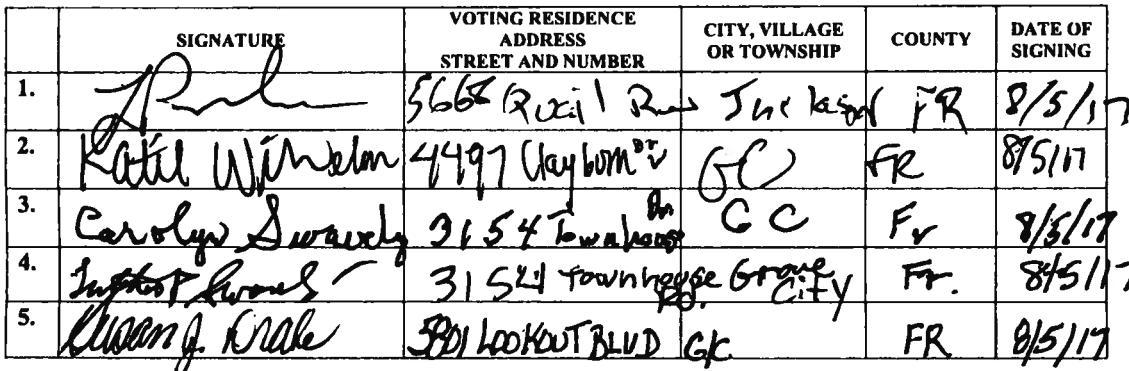 SIGNATURE VOTING RESIDENCE ADDRESS STREET AND NUMBER CITY, VILLAGE OR TOWNSHIP COUNTY DATE OF SIGNING
1. 5668 Quail Run Jackson FR 8/5/17
2. Katie Wilhelm 4497 Clayburn Dr GC FR 8/5/17
3. Carolyn 3154 Townhouse Dr GC Fr 8/5/17
4. 3154 Townhouse Rd. Grove City Fr. 8/5/17
5. Susan J. Drake 5801 LOOKOUT BLVD G/C FR 8/5/17